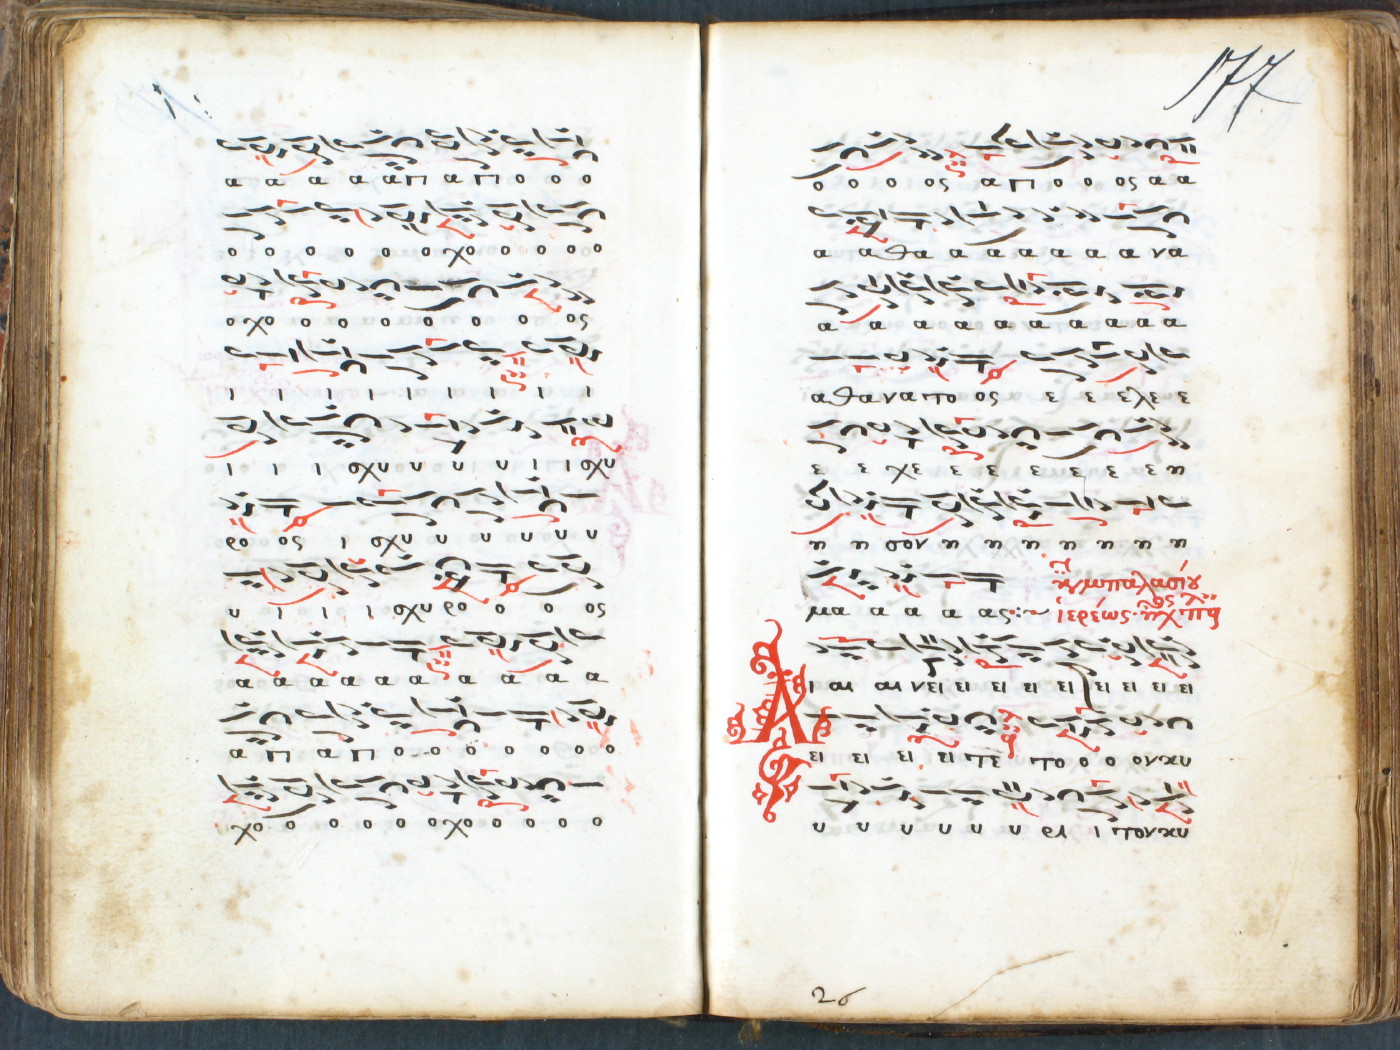 α α α α α απ απ ο ο ο
ο ο ο ο ο ο χο ο ο ο ο
ο χο ο ο ο ο ο ο ο ο ος
ι ι ι ι ι ι ι ι ι
ι ι ι σχυ υ υ υ υ ι ι σχυ
ρο ος ι σχυ υ υ υ υ υ υ
υ ι ι ι σχυ ρο ο ο ο ος
α α α α α α α α α α
α π α π ο ο ο ο ο ο ο ο
χο ο ο ο ο ο χο ο ο ο ο
177
ο ο ο ο ος α π ο ο ος α α
α α θα α α α α α α να
α α α α α α α α α α
α θα να το ος ε ε ε λε ε
ε ε χε ε ε ε ε ε ε ε η
η η σον η η η η η η η
μα α α α ας
ιερέως
Α ι αι αι νει ει ει ει ει ει ει ει
ει ει ει ει τε το ο ο ον κυ
υ υ υ υ υ υ ρι ι τον κυ
26